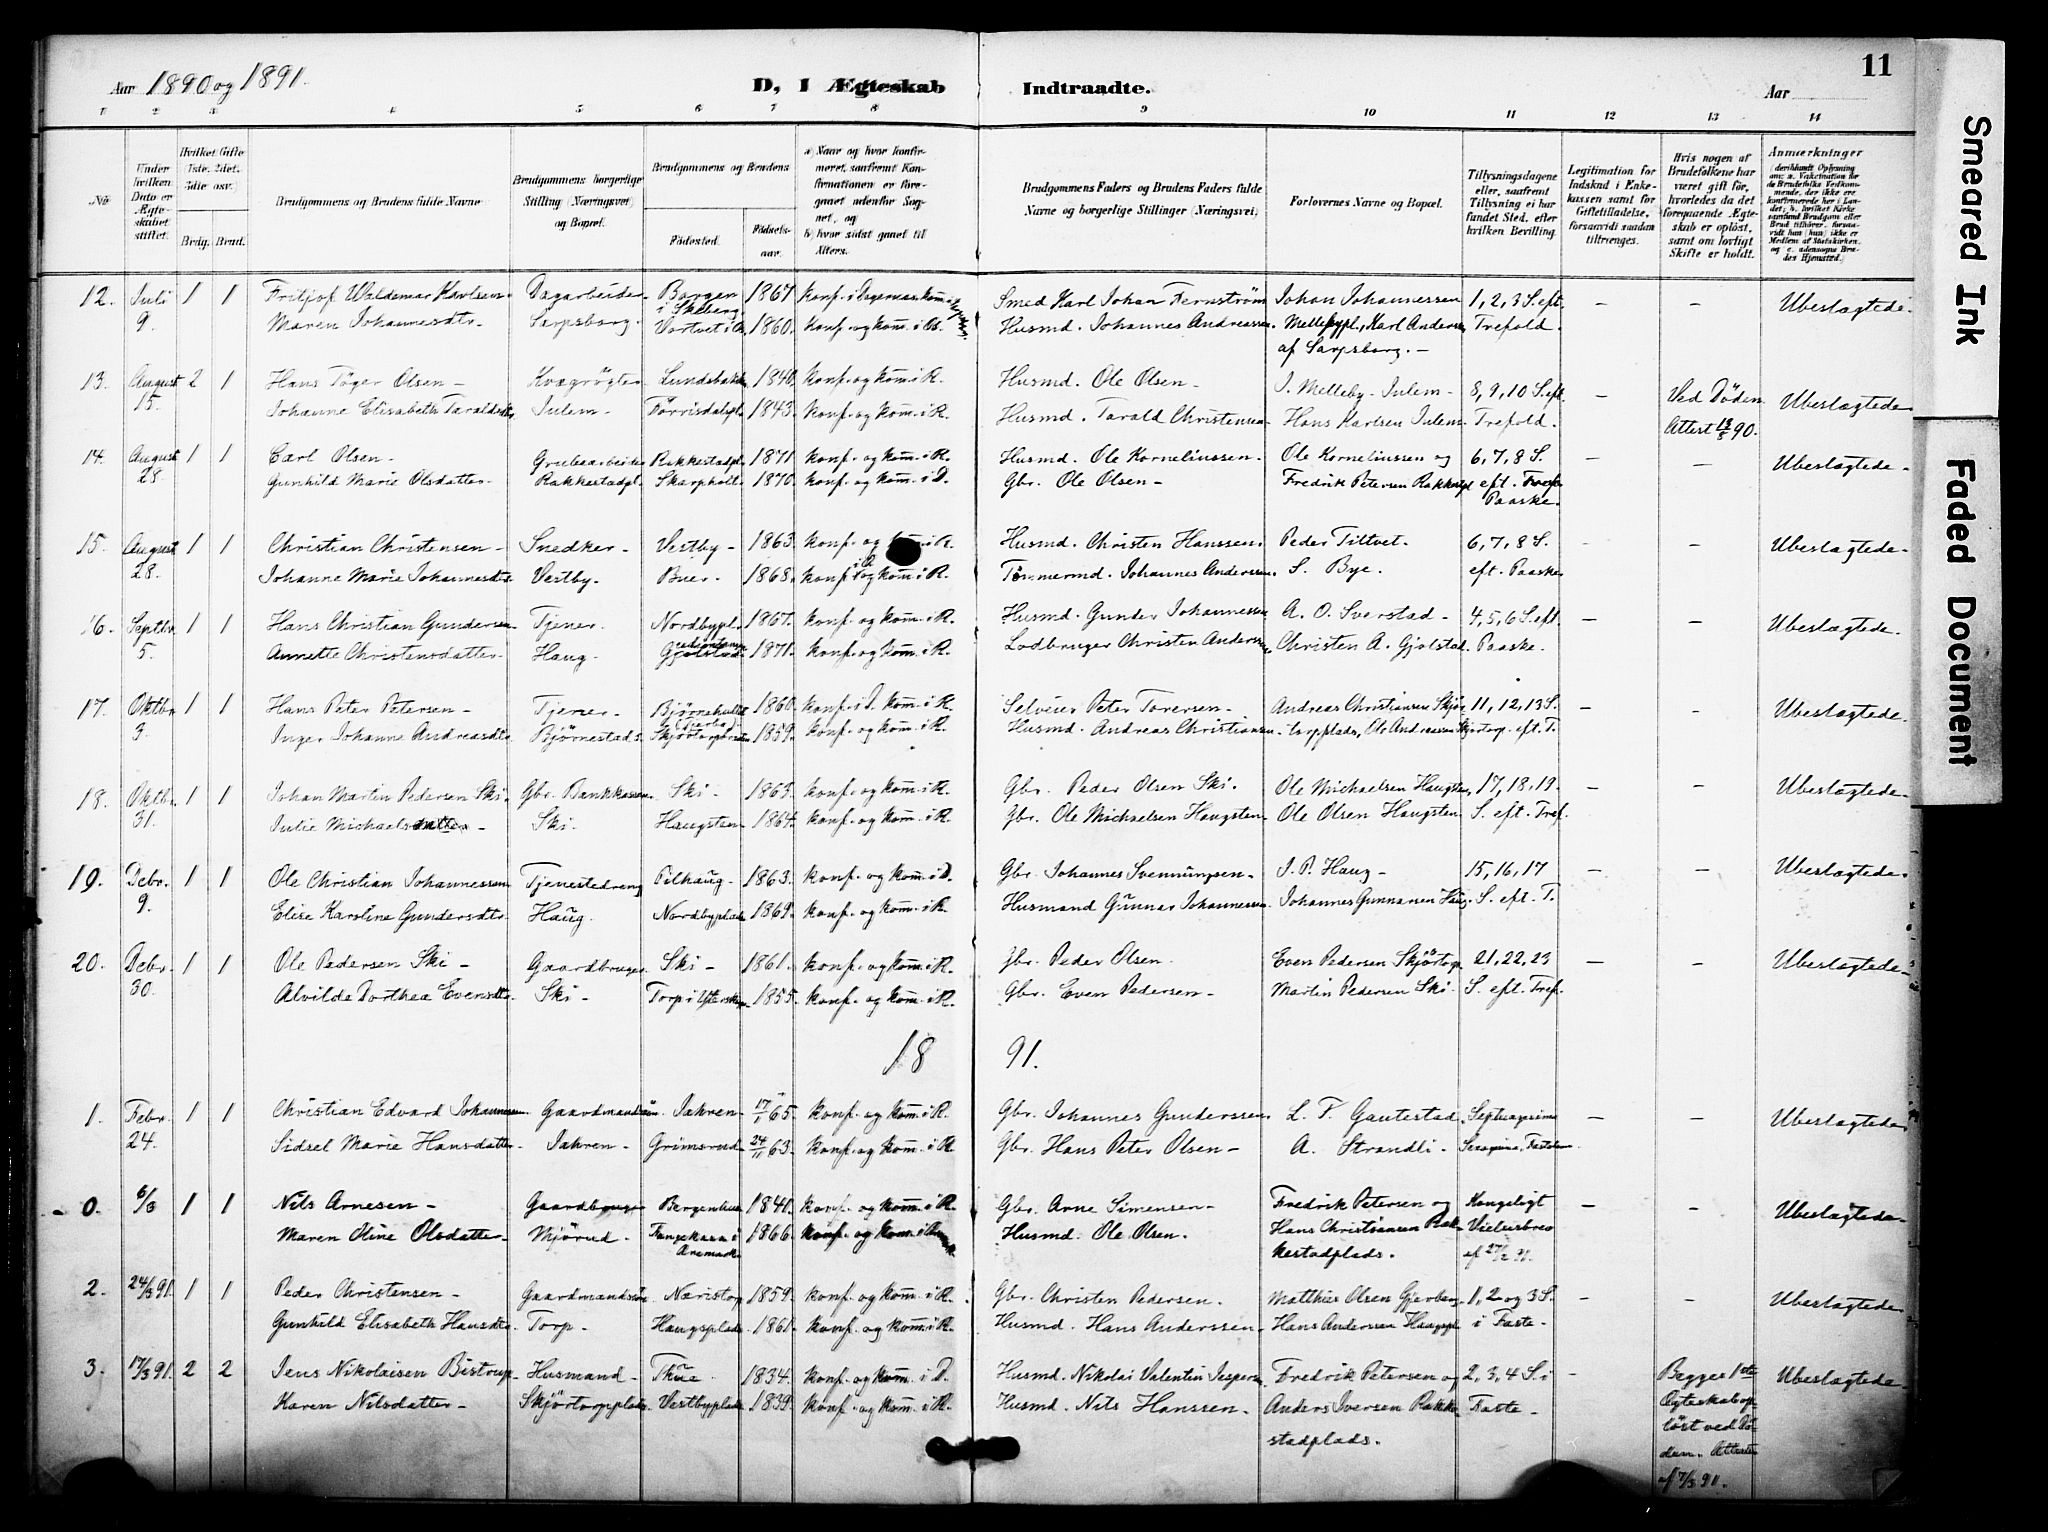 11
Aar 1890 og 1891.
D, 1 Ægteskab Indtraadte.
Aar
1 2 3 4 5 6 7 8 9 10 11 12 13 14
No
Under hvilken Dato er Ægteskabet stiftet.
Hvilket Gifte (1ste, 2det, 3die osv.)
Brdg. Brud.
Brudgommens og Brudens fulde Navne
Brudgommens borgerlige Stilling (Næringsvei) og Bopæl.
Brudgommens og Brudens
Fødested.
Fødselsaar.
a) Naar og hvor konfirmeret, saafremt Konfirmationen er foregaaet udenfor Sognet, og
b) hvor sidst gaaet til Alters.
Brudgommens Faders og Brudens Faders fulde Navne og borgerlige Stillinger (Næringsvei).
Forlovernes Navne og Bopæl.
Tillysningsdagene eller, saafremt Tillysning ei har fundet Sted, efter hvilken Bevilling.
Legitimation for Indskud i Enkekassen samt for Giftetilladelse, forsaavidt saadan tiltrænges.
Hvis nogen af Brudefolkene har været gift før, hvorledes da det foregaaende Ægteskab er opløst, samt om lovligt Skifte er holdt.
Anmærkninger
Smeared Ink
Faded Document
12. Juli 1 1 Fritjof Waldemar Karlsen Dagarbeider Borgen i Skeberg 1867 Smed Karl Johan Fernstrøm Johan Johannessen 1, 2, 3 S. eft. – – Ubeslægtede.
9. Maren Johannesdtr. Sarpsborg. 1860. konf. og kom. i Husmd. Johannes Andreassen. Karl Andersen Trefold.
af Sarpsborg. –
13. August 2 1 Hans Tøger Olsen – Kvægrøgter 1840. konf. og kom. i R. Husmd. Ole Olsen – J. Melleby Julem – 8, 9, 10 S. eft. – Ved Døden Ubeslægtede
15. Johanne Elisabeth Taraldsdtr. Julem – 1843. konf. og kom. i R. Husmd. Tarald Christensen Hans Karlsen Julem Trefold. Attest 13/8 90.
14. August 1 1 Carl Olsen – Grubearbeider Rakkestadpl. 1871 konf. og kom. i R. Husmd. Ole Korneliussen – Ole Korneliussen og 6, 7, 8 S. – – Ubeslægtede –
28. Gunhild Marie Olsdatter – Rakkestadpl. Skarpholt 1870. konf. og kom. i D. Gbr. Ole Olsen – Fredrik Petersen Rakkestpl. eft.
Paaske.
15. August 1 1 Christian Christensen – Snedker – Vestby – 1863. konf. og kom. i R. Husmd. Christen Hanssen. Peder Tiltvet. 6, 7, 8 S. – – Ubeslægtede –
28. Johanne Marie Johannesdtr. Vestby. Buer. 1868. konf. og kom. i R. Tømmermd. Johannes Anderssen. S. Bye. eft. Paaske
16. Septbr. 1 1 Hans Christian Gundersen Tjener. Nordbypl. 1867. konf. og kom. i R. Husmd. Gunder Johannessen A. O. Sverstad – 4, 5, 6 S. eft. – – Ubeslægtede.
5. Annette Christensdatter. Haug. Gjølstad 1871. konf. og kom. i R. Lodbruger Christen Anderssen, Christen A. Gjølstad. Paaske.
17. Oktbr. 1 1 Hans Peter Petersen – Tjener. 1860. konf. i D. kom. i R. Selveier Peter Torersen – Andreas Christiansen Skjør 11, 12, 13 S. – – Ubeslægtede.
3. Inger Johanne Andreasdtr. Bjørnestad 1859. konf. og kom. i R. Husmd. Andreas Christiansen – torpplads, Ole Andreassen Skjørtorp. eft. T.
18. Oktbr. 1 1 Johan Martin Pedersen Ski. Gbr. Bankkasser. Ski – 1863. konf. og kom. i R. Gbr. Peder Olsen Ski. Ole Michaelsen Haugsten, 17, 18, 19. – – Ubeslægtede –
31. Julie Michaelsdatter – Ski. Haugsten 1864. konf. og kom. i R. Gbr. Ole Michaelsen Haugsten – Ole Olsen Haugsten. S. eft. Tref.
19. Decbr. 1 1 Ole Christian Johannessen Tjenestedreng Pilhaug – 1863. konf. og kom. i D. Gbr. Johannes Svennungsen – J. P. Haug – 15, 16, 17 – – Ubeslægtede.
9. Elise Karoline Gundersdtr. Haug. Nordbyplads 1869. konf. og kom. i R. Husmand Gunnar Johannessen Johannes Gunnarsen Haug. S. eft. T.
20. Decbr. 1 1 Ole Pedersen Ski – Gaardbruger Ski – 1861. konf. og kom. i R. Gbr. Peder Olsen. Even Pedersen Skjørtorp. 21, 22, 23 – – Ubeslægtede –
30. Alvilde Dorthea Evensdtr. Ski – Torp i 1855. konf. og kom. i R. Gbr. Even Pedersen – Martin Pedersen Ski. S. eft. Tref.
1891.
1. Febr. 1 1 Christian Edvard Johannessen Gaardmandssøn Jahren – 17/1 65. konf. og kom. i R. Gbr. Johannes Gunderssen L. F. Gautestad. Septuagesima – – Ubeslægtede
24. Sidsel Marie Hansdatter – Jahren – Grimsrud 24/11 63. konf. og kom. i R. Gbr. Hans Peter Olsen – A. Strandli –
0. 6/3 1 1 Nils Arnesen – Gaardbruger 1840. konf. og kom. i R. Gbr. Arne Simensen – Fredrik Petersen og Kongeligt – – Ubeslægtede
Maren Oline Olsdatter – Mjørud. 1866. konf. og kom. i Husmd. Ole Olsen. Hans Christiansen Rak- Vielsesbrev
Aremark kestadplads. af 27/2 91.
2. 24/3 91. 1 1 Peder Christensen – Gaardmandssøn Næristorp 1859. konf. og kom. i R. Gbr. Christen Pedersen. Matthias Olsen Gjerberg, 1, 2 og 3 S. – – Ubeslægtede
Gunhild Elisabeth Hansdtr. Torp – Haugsplads 1861. konf. og kom. i R. Husmd. Hans Anderssen – Hans Anderssen Haugspl. i Faste –
3. 17/3 91. 2 2 Jens Nikolaisen Bistrup Husmand – Thue. 1834. konf. og kom. i D. Husmd. Nikolai Valentin Jespersen Fredrik Petersen og 2, 3, 4 S. i – Begges 1ste Ubeslægtede
Karen Nilsdatter – Skjørtorpplads. Vestbyplads 1839. konf. og kom. i R. Husmd. Nils Hanssen – Anders Iversen Rakke- Faste – Ægteskab op-
stadplads. løst ved Dø-
den. Attester
af 7/3 91.